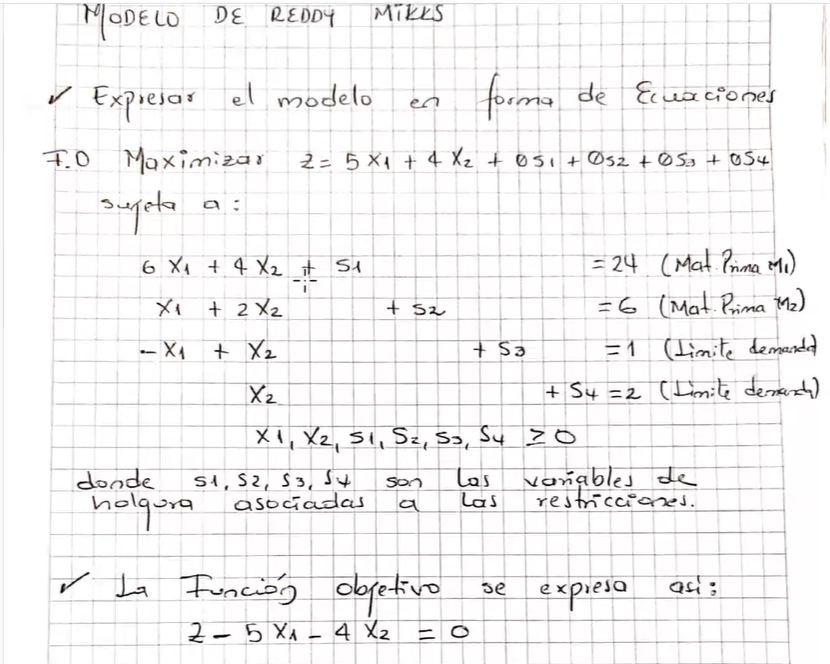 MODELO DE REDDY MIKKS
✓ Expresar el modelo en forma de Ecuaciones
F.O Maximizar Z = 5X1 + 4X2 + 0S1 + 0S2 + 0S3 + 0S4
sujeta a:
6X1 + 4X2 + S1 = 24 (Mat. Prima M1)
X1 + 2X2 + S2 = 6 (Mat. Prima M2)
-X1 + X2 + S3 = 1 (Límite demanda)
X2 + S4 = 2 (Límite demanda)
X1, X2, S1, S2, S3, S4 ≥ 0
donde S1, S2, S3, S4 son las variables de
holgura asociadas a las restricciones.
✓ La Función objetivo se expresa así:
Z - 5X1 - 4X2 = 0